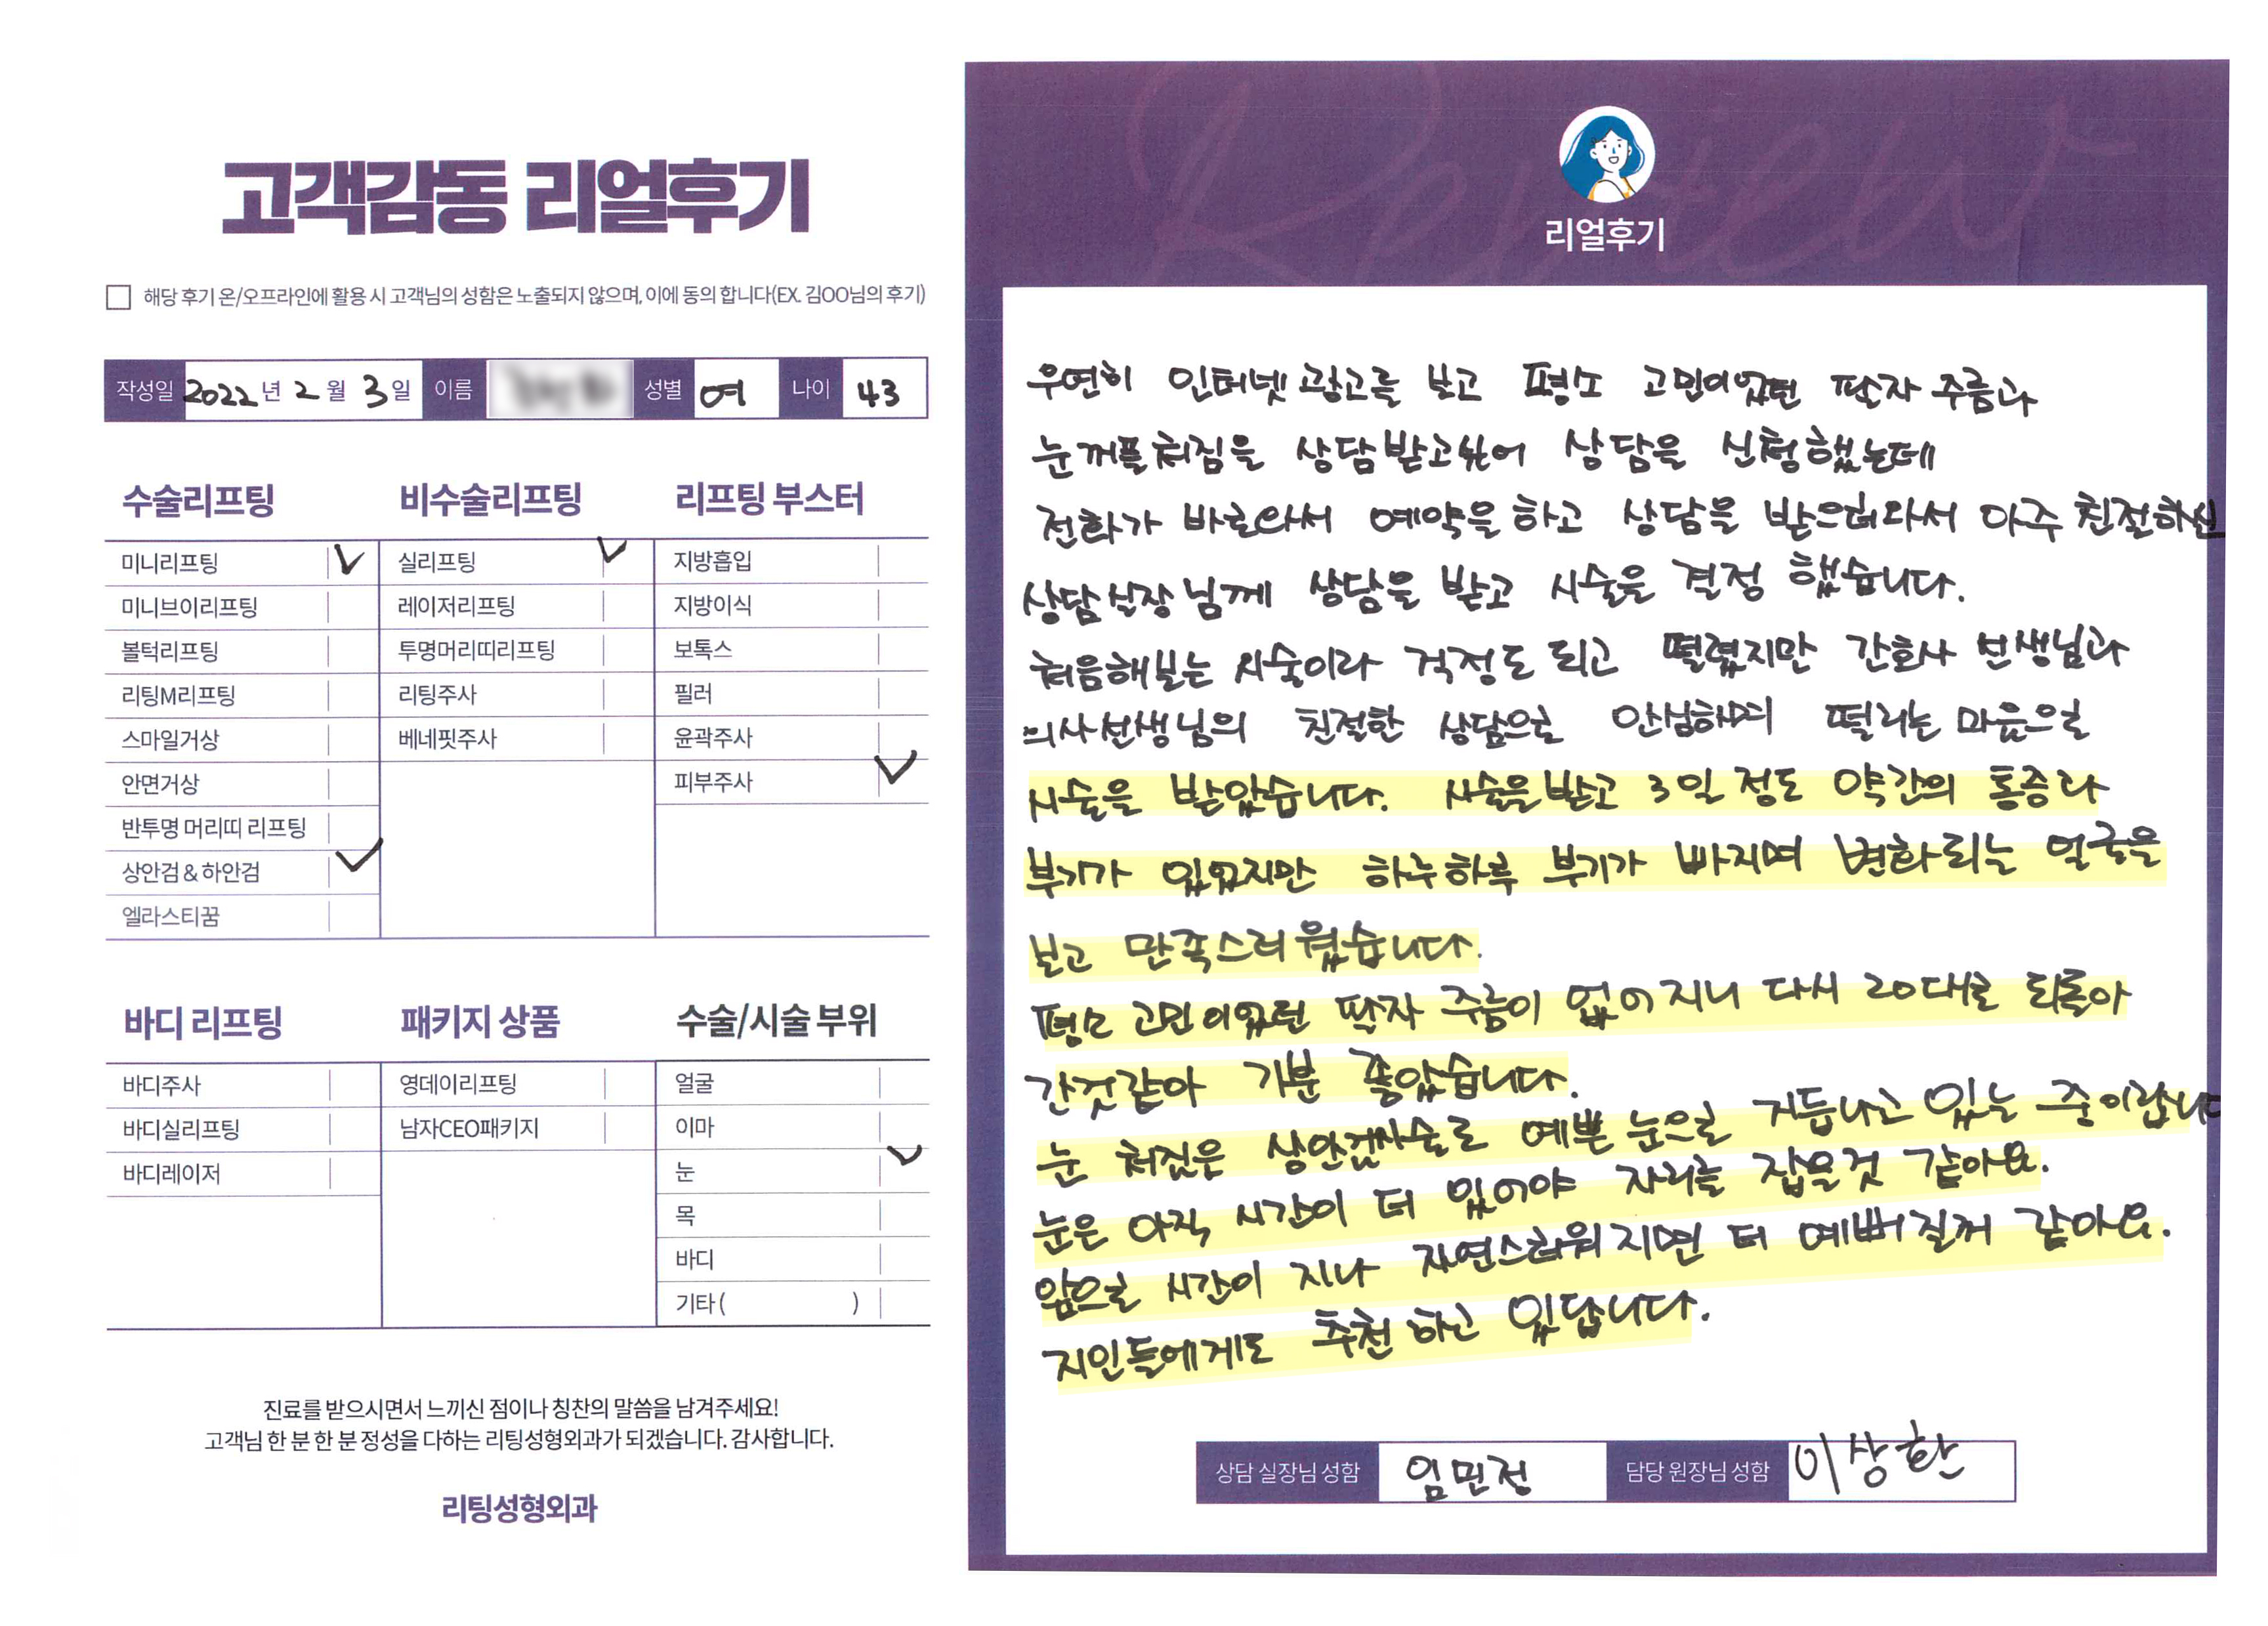 고객감동 리얼후기
해당 후기 온/오프라인에 활용 시 고객님의 성함은 노출되지 않으며, 이에 동의 합니다(EX. 김OO님의 후기)
작성일 2022년 2월 3일 이름 성별 여 나이 43
수술리프팅
미니리프팅
미니브이리프팅
볼턱리프팅
리팅M리프팅
스마일거상
안면거상
반투명 머리띠 리프팅
상안검&하안검
엘라스티꿈
비수술리프팅
실리프팅
레이저리프팅
투명머리띠리프팅
리팅주사
베네핏주사
리프팅 부스터
지방흡입
지방이식
보톡스
필러
윤곽주사
피부주사
바디 리프팅
바디주사
바디실리프팅
바디레이저
패키지 상품
영데이리프팅
남자CEO패키지
수술/시술 부위
얼굴
이마
눈
목
바디
기타( )
진료를 받으시면서 느끼신 점이나 칭찬의 말씀을 남겨주세요!
고객님 한 분 한 분 정성을 다하는 리팅성형외과가 되겠습니다. 감사합니다.
리팅성형외과
Review
리얼후기
우연히 인터넷 광고를 보고 평소 고민이었던 팔자 주름과
눈꺼풀처짐을 상담받고싶어 상담을 신청했는데
전화가 바로와서 예약을 하고 상담을 받으러와서 아주 친절하신
상담실장님께 상담을 받고 시술을 결정 했습니다.
처음해보는 시술이라 걱정도 되고 떨렸지만 간호사 선생님과
의사선생님의 친절한 상담으로 안심하며 떨리는 마음으로
시술을 받았습니다. 시술을받고 3일 정도 약간의 통증과
부기가 있었지만 하루하루 부기가 빠지며 변화되는 얼굴을
보고 만족스러웠습니다.
평소 고민이었던 팔자 주름이 없어지니 다시 20대로 되돌아
간것같아 기분 좋았습니다.
눈 처짐은 상안검수술로 예쁜 눈으로 거듭나고 있는 중이랍니다
눈은 아직 시간이 더 있어야 자리를 잡을것 같아요.
앞으로 시간이 지나 자연스러워지면 더 예뻐질꺼 같아요.
지인들에게도 추천하고 있답니다.
상담 실장님 성함 임민정 담당 원장님 성함 이상한